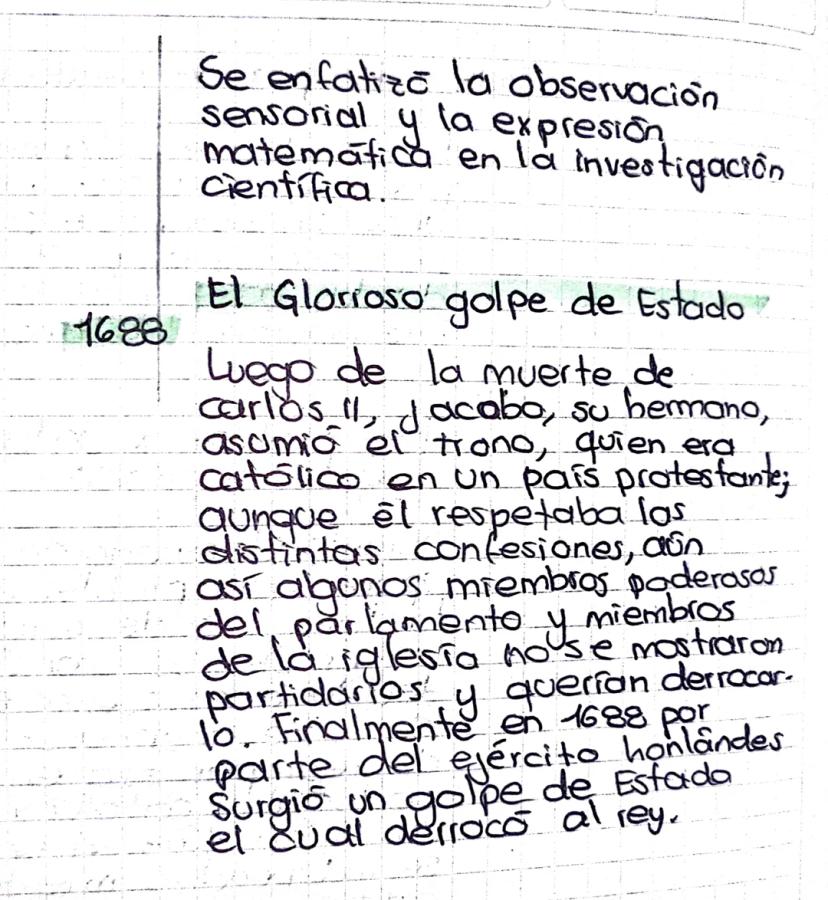 Se enfatizó la observación
sensorial y la expresión
matemática en la investigación
científica.
El Glorioso golpe de Estado
1688
Luego de la muerte de
Carlos II, Jacobo, su hermano,
asumió el trono, quien era
católico en un país protestante;
aunque él respetaba las
distintas confesiones, aún
así algunos miembros poderosos
del parlamento y miembros
de la iglesia no se mostraron
partidarios y querían derrocar-
lo. Finalmente en 1688 por
parte del ejército honlándes
Surgió un golpe de Estado
el cual derrocó al rey.